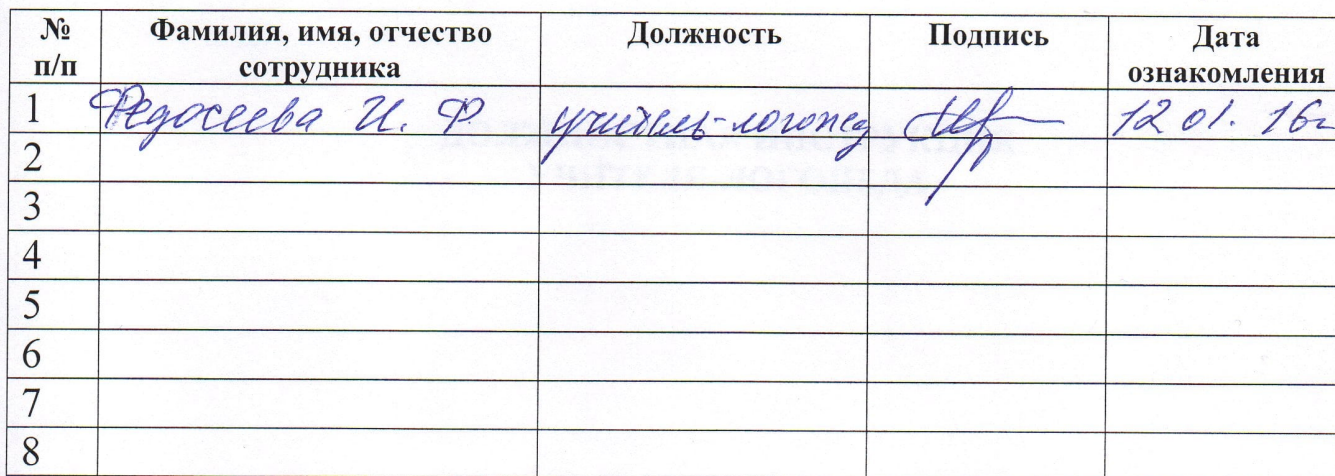 № п/п Фамилия, имя, отчество сотрудника Должность Подпись Дата ознакомления
1 Федосеева И. Ф. учитель-логопед 12 01. 16г
2
3
4
5
6
7
8